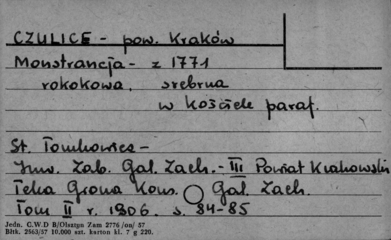 CZULICE - pow. Kraków
Monstrancja - z 1771
rokokowa. srebrna
w kościele paraf.
St. Tomkowicz -
Inw. Zab. Gal. Zach. - III Powiat Krakowski
Teka Grona Kons. Gal. Zach.
Tom II r. 1906. s. 84-85
Jedn. C.W.D B/Olsztyn Zam 2776/na/ 57
Bltk. 2563/57 10.000 szt. karton kl. 7 g 220.